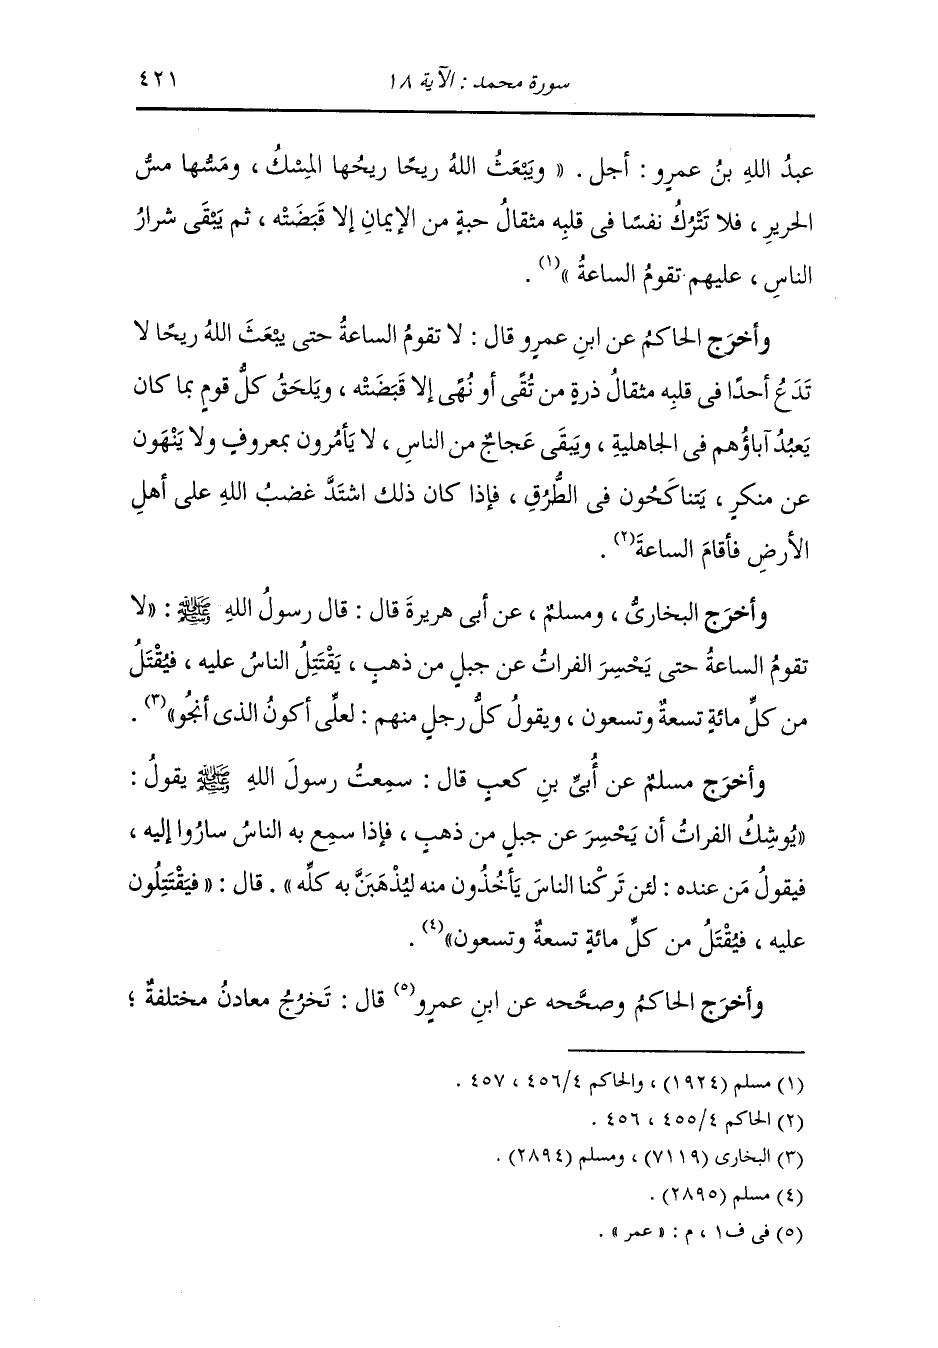 سورة محمد : الآية ١٨
٤٢١
عبدُ اللهِ بنُ عمرٍو : أجل . « ويَبْعَثُ اللهُ ريحًا ريحُها المِسْكُ ، ومَسُّها مسُّ
الحريرِ ، فلا تَتْرُكُ نفسًا فى قلبِه مثقالُ حبةٍ من الإيمانِ إلا قَبَضَتْه ، ثم يَبْقَى شرارُ
الناسِ ، عليهم تقومُ الساعةُ »(١) .
وأخرَج الحاكمُ عن ابنِ عمرٍو قال : لا تقومُ الساعةُ حتى يبْعَثَ اللهُ ريحًا لا
تَدَعُ أحدًا فى قلبِه مثقالُ ذرةٍ من تُقًى أو نُهًى إلا قَبَضَتْه ، ويَلحَقُ كلُّ قومٍ بما كان
يَعبُدُ آباؤُهم فى الجاهليةِ ، ويَبقَى عَجاجٌ من الناسِ ، لا يَأمُرون بمعروفٍ ولا يَنْهَون
عن منكرٍ ، يَتناكَحُون فى الطُّرُقِ ، فإذا كان ذلك اشتَدَّ غضبُ اللهِ على أهلِ
الأرضِ فأقامَ الساعةَ(٢) .
وأخرَج البخارىُّ ، ومسلمٌ ، عن أبى هريرةَ قال : قال رسولُ اللهِ ﷺ : «لا
تقومُ الساعةُ حتى يَحْسِرَ الفراتُ عن جبلٍ من ذهبٍ ، يَقْتَتِلُ الناسُ عليه ، فيُقْتَلُ
من كلِّ مائةٍ تسعةٌ وتسعون ، ويقولُ كلُّ رجلٍ منهم : لعلِّى أكونُ الذى أنجُو»(٣) .
وأخرَج مسلمٌ عن أُبىِّ بنِ كعبٍ قال : سمِعتُ رسولَ اللهِ ﷺ يقولُ :
«يُوشِكُ الفراتُ أن يَحْسِرَ عن جبلٍ من ذهبٍ ، فإذا سمِع به الناسُ سارُوا إليه ،
فيقولُ مَن عنده : لئن تَركْنا الناسَ يَأخُذُون منه ليُذْهَبَنَّ به كلِّه» . قال : «فيَقْتَتِلُون
عليه ، فيُقْتَلُ من كلِّ مائةٍ تسعةٌ وتسعون»(٤) .
وأخرَج الحاكمُ وصحَّحه عن ابنِ عمرٍو(٥) قال : تَخرُجُ معادنُ مختلفةٌ ؛
(١) مسلم (١٩٢٤) ، والحاكم ٤٥٦/٤ ، ٤٥٧ .
(٢) الحاكم ٤٥٥/٤ ، ٤٥٦ .
(٣) البخارى (٧١١٩) ، ومسلم (٢٨٩٤) .
(٤) مسلم (٢٨٩٥) .
(٥) فى ف١ ، م : « عمر » .